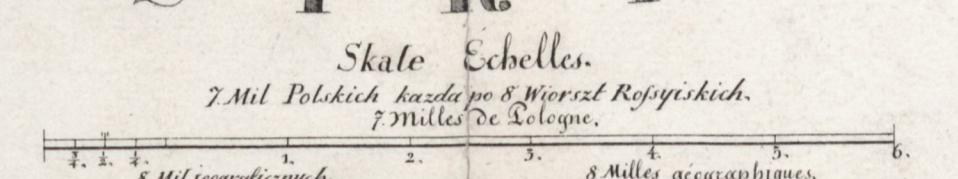 Skale Echelles.
7. Mil Polskich kazda po 8 Wiorszt Rofsyiskich.
7. Milles de Pologne.
3/4. 1/2. 1/4. 1. 2. 3. 4. 5. 6.
8 Mil geograficznych. 8 Milles géographiques.